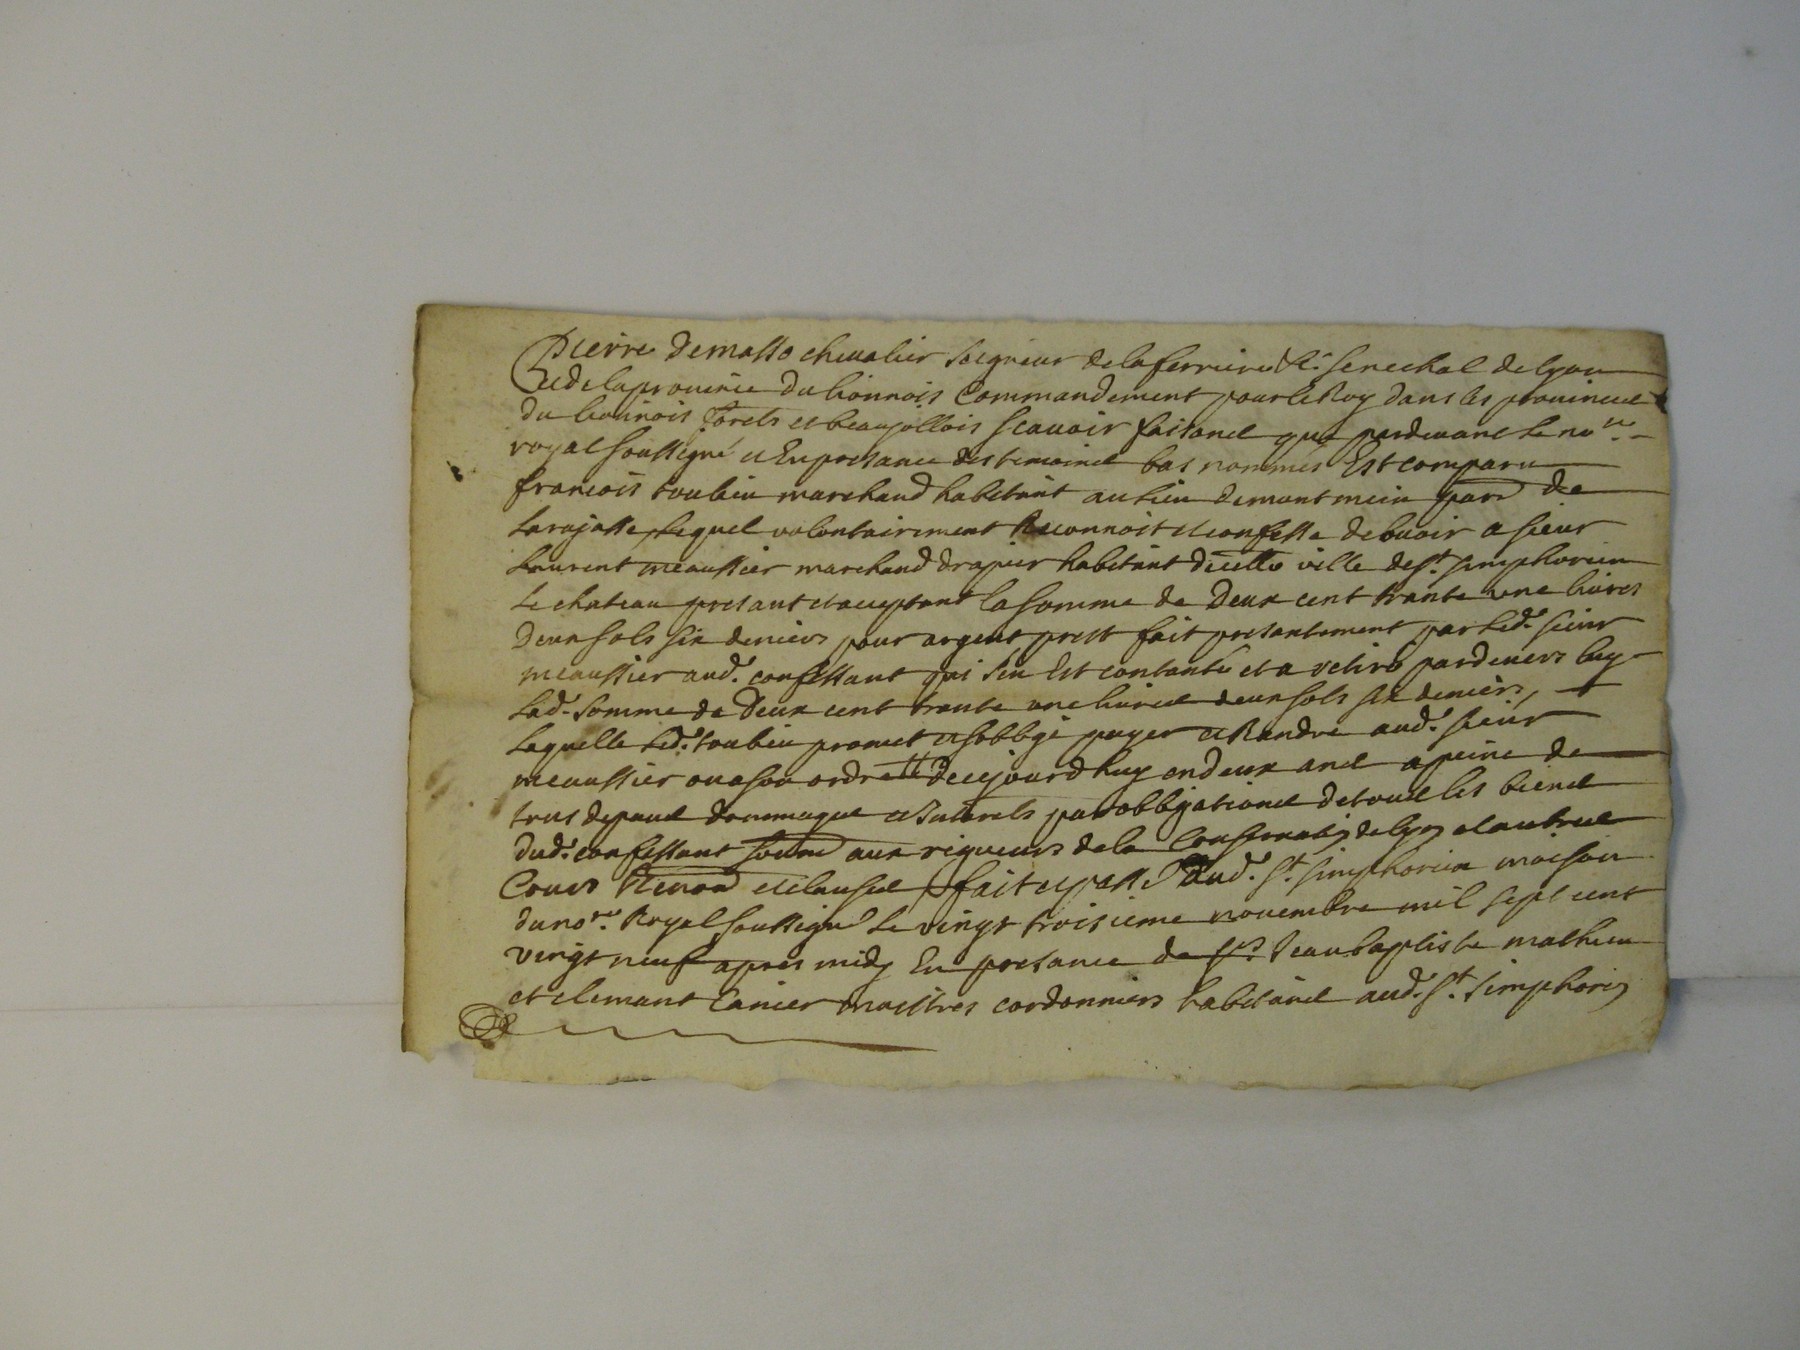 Pierre demasso chevalier seigneur de la ferriere Sr. senechal de lyon
et de la province du lionnois Commandement pour le Roy dans les provinces
du lionnois forets et beaujollois scauoir faisons que pardeuant le nore.
royal soussigné et En presance des temoins bas nommés Est comparu
francois toubieu marchand habitant au lieu de par de
Larajasse Lequel volontairement Reconnoit et confesse debuoir a sieur
Laurent meaussier marchand drapier habitant dicelle ville de st. simphorien
Le chateau presant et acceptant la somme de Deux cent trante une livres
Deux sols six deniers pour argent prest fait presantement par led. sieur
meaussier aud. confessant qui sen Est contanté et a retiré pardeuers luy
Lad. somme de Deux cent trante une livres deux sols six deniers,
Laquelle led. toubieu promet et sobblige payer et Randre aud. sieur
meaussier ou a son ordre Decejourdhuy en deux ans a peine de
tous depans dommages et Interets par obbligations de tous les biens
dud. confessant soumi aux rigueurs de la Conservatio de lyon et autres
Cours Renon et clauses fait et passé aud. st. simphorien maison
du nore. Royal soussigné Le vingt troisieme novembre mil sept cent
vingt neuf apres midy En presance de srs. Jean baptiste mathieu
et clemant maistres cordonniers habitans aud. st. simphorien